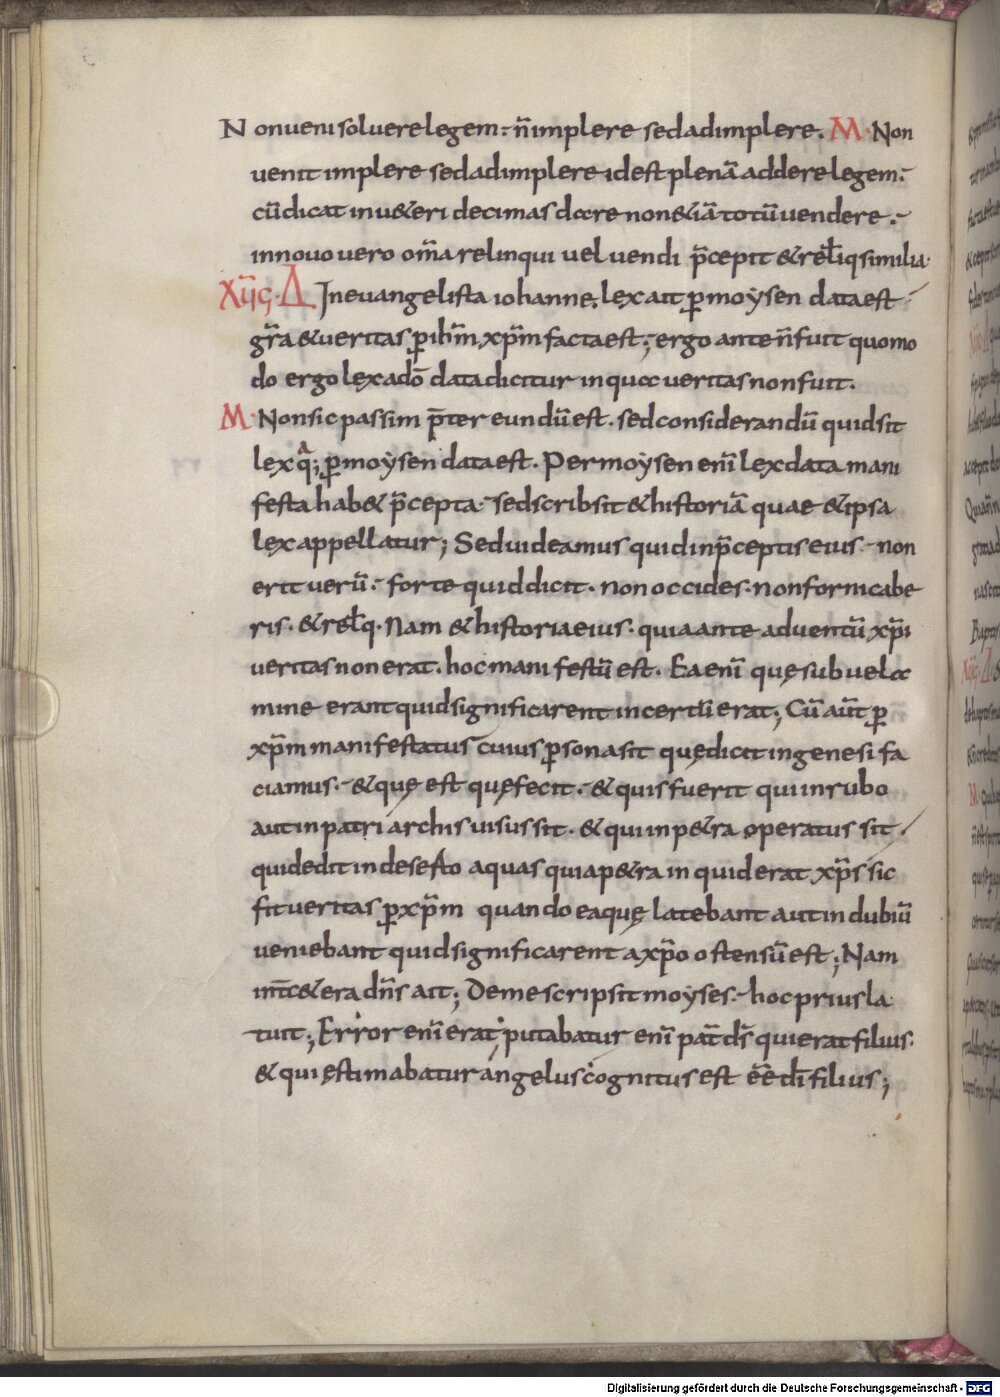 Non ueni soluere legem: n̄ implere sed adimplere. M. Non
uenit implere sed adimplere id est plenā addere legem:
cū dicat in u&eri decimas dare non &iā totū uendere.
in nouo uero om̄a relinqui uel uendi p̄cepit & rel̄iq similia.
Xyiiς. Δ In euangelista iohanne, lex ait ꝑ moysen data est
gr̄a & ueritas ꝑ ihm̄ xp̄m facta est; ergo ante n̄ fuit quomo
do ergo lex a dō data dicitur in qua ueritas non fuit.
M. Non sic passim p̄ter eundū est. sed considerandū quid sit
lex q̄; ꝑ moysen data est. Per moysen enī lex data mani
festa hab& p̄cepta. sed scribsit & historiā quae & ipsa
lex appellatur; Sed uideamus quid in p̄ceptis eius non
erit uerū. forte quid dicit. non occides. non fornicabe
ris. & rel̄q. Nam & historia eius. quia ante aduentū xp̄i
ueritas non erat. hoc manifestū est. Ea enī quę sub uela
mine erant quid significarent incertū erat; Cū aūt ꝑ
xp̄m manifestatus cuius ꝑsona sit quę dicit in genesi fa
ciamus. & quę est quę fecit. & quis fuerit qui in rubo
aut in patriarchis uisus sit. & qui in p&ra operatus sit
qui dedit in deserto aquas quia p&ra in quid erat xp̄s sic
fit ueritas ꝑ xp̄m quando ea quę latebant aut in dubiū
ueniebant quid significarent a xp̄o ostensū est; Nam
int̄ c&era dn̄s ait; De me scripsit moyses. hoc prius la
tuit; Error enī erat putabatur enī pat̄ ds̄ qui erat filius.
& qui ęstimabatur angelus cognitus est eē dī filius;
Digitalisierung gefördert durch die Deutsche Forschungsgemeinschaft - DFG